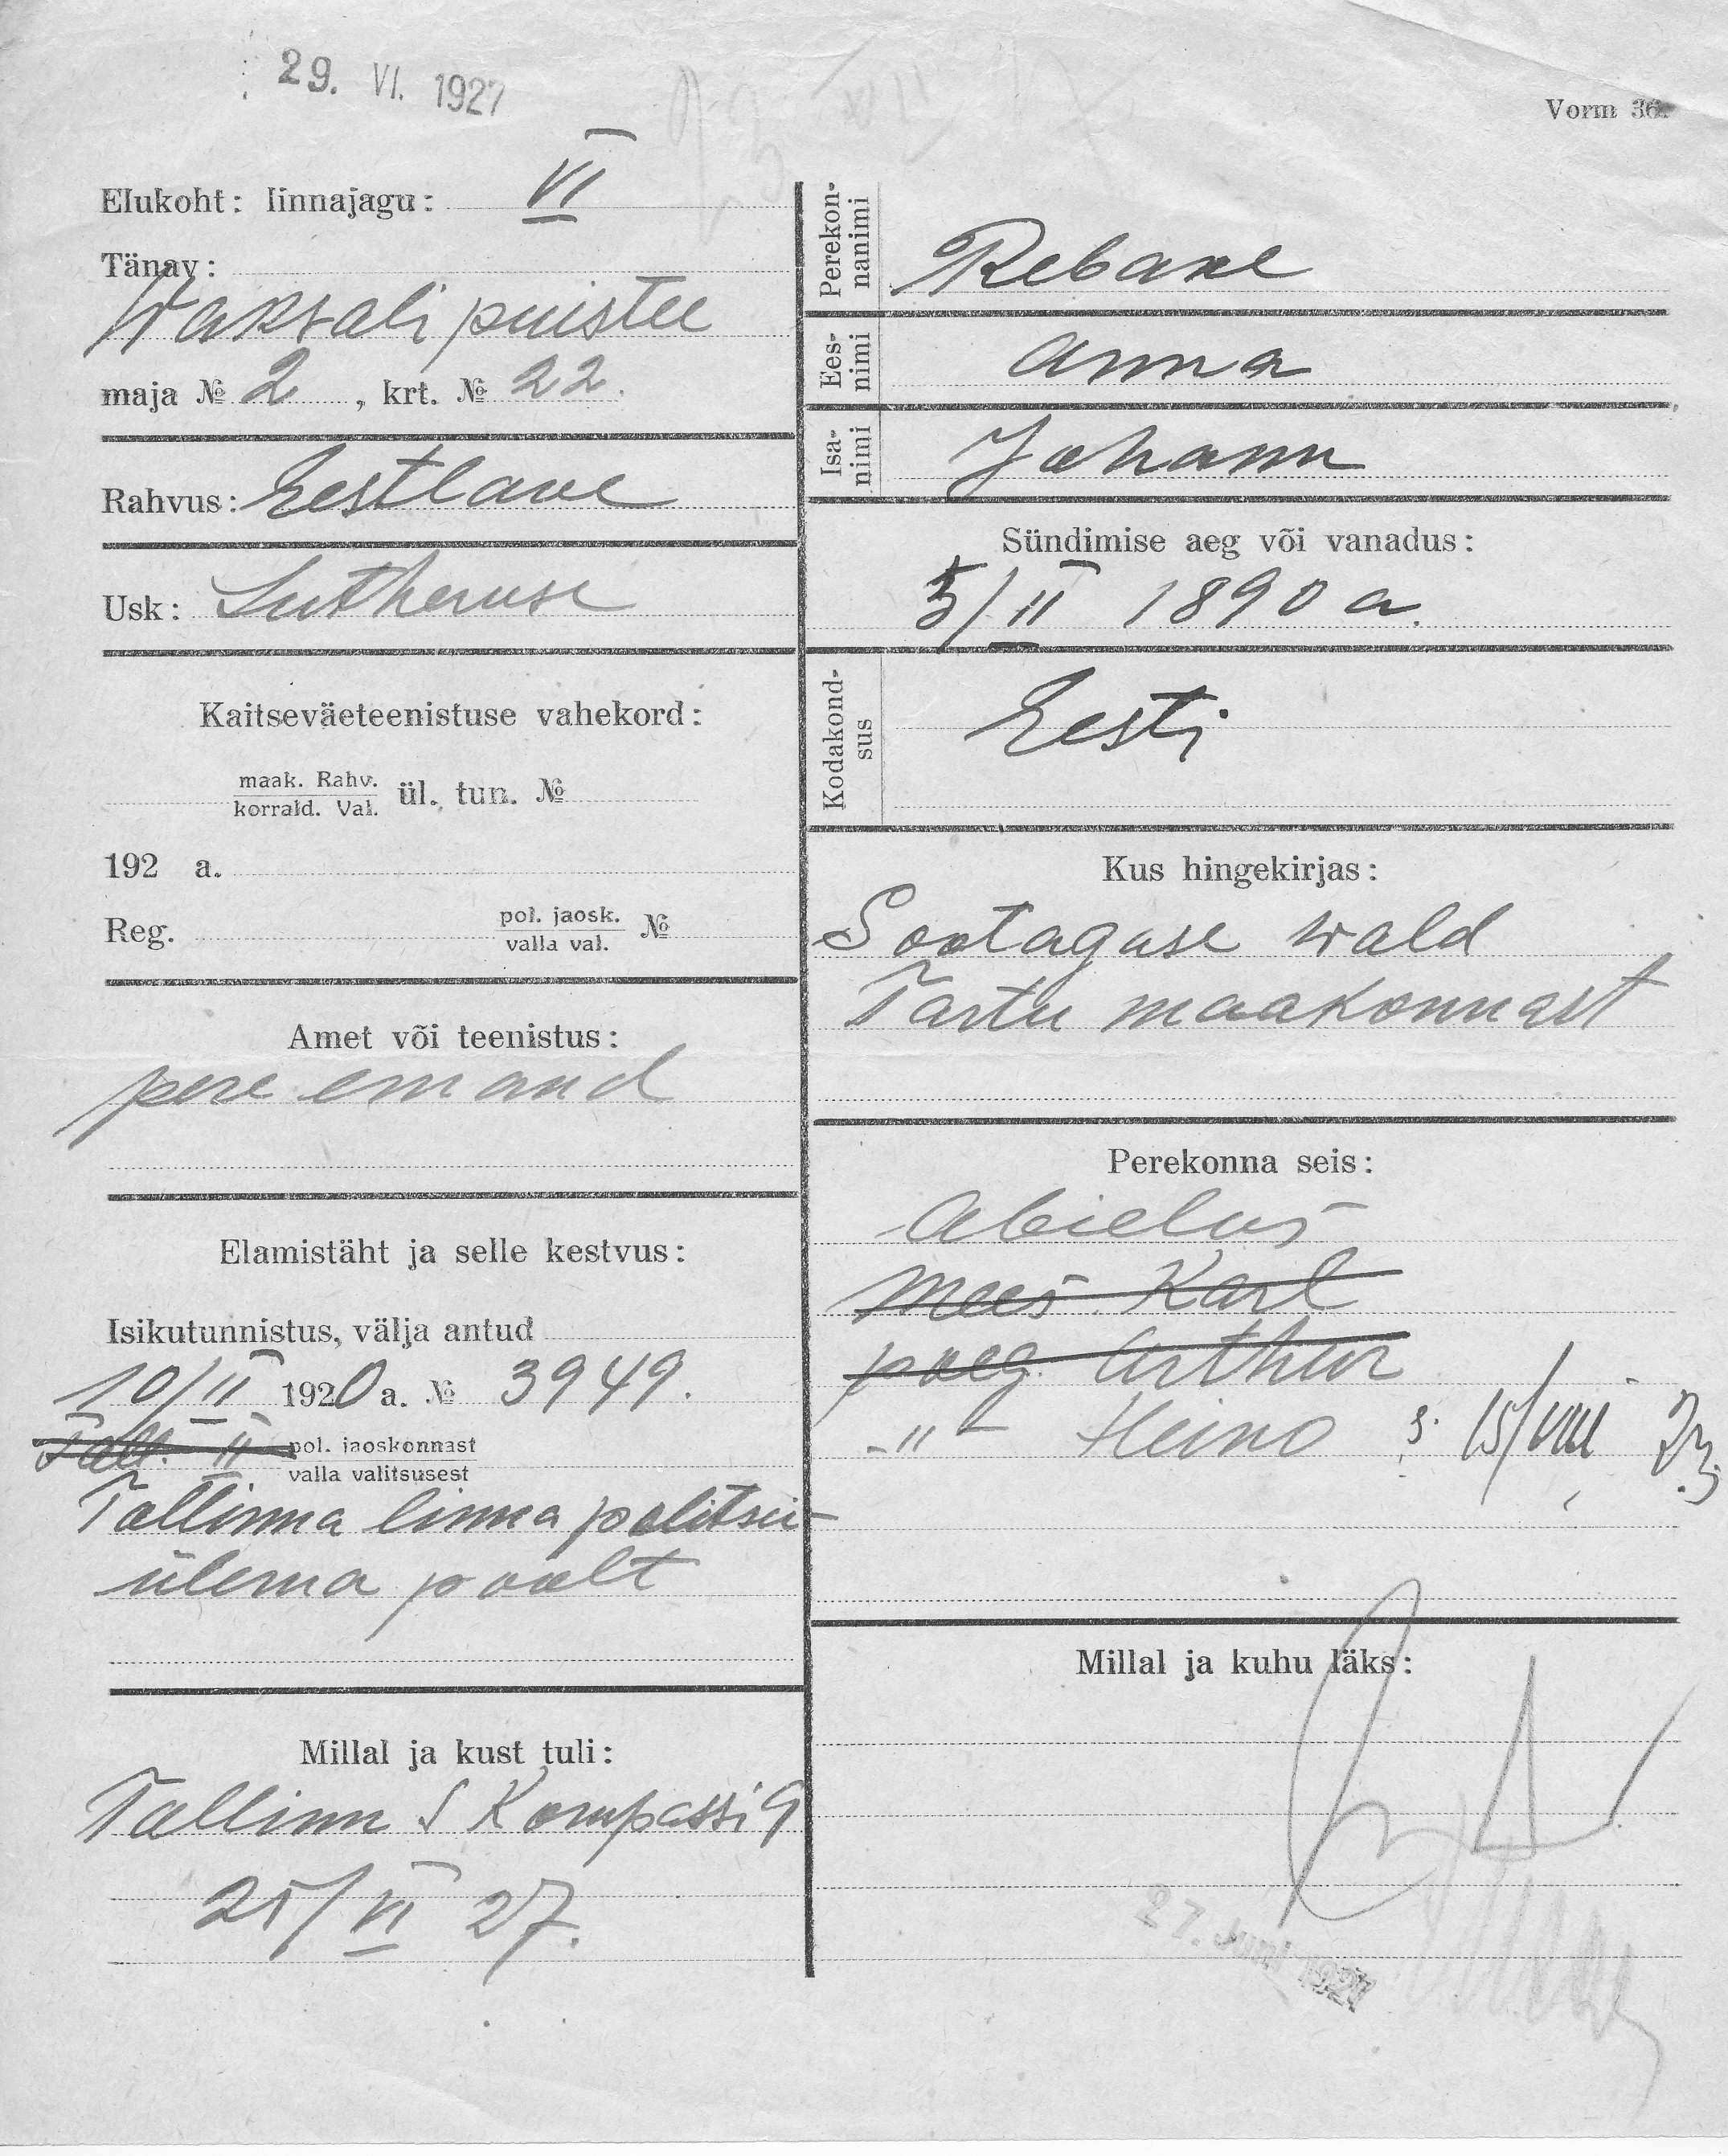 29. VI. 1927
Vorm 36.
Elukoht: linnajagu: VI
Tänav:
Waksali puistee
maja № 2 , krt. № 22.
Rahvus: Eestlane
Usk: Lutheruse
Kaitseväeteenistuse vahekord:
maak. Rahv.
korrald. Val. ül. tun. №
192 a.
Reg. pol. jaosk.
valla val. №
Amet või teenistus:
pere emand
Elamistäht ja selle kestvus:
Isikutunnistus, välja antud
10/II 1920 a. № 3949.
Tall. II pol. jaoskonnast
valla valitsusest
Tallinna linna politsei-
ülema poolt
Millal ja kust tuli:
Tallinn S Kompassi 9
25/VI 27.
Perekon-
nanimi
Rebane
Ees-
nimi
Anna
Isa-
nimi
Johann
Sündimise aeg või vanadus:
5/II 1890 a.
Kodakond-
sus
Eesti
Kus hingekirjas:
Sootaguse wald
Tartu maakonnast
Perekonna seis:
Abielus
mees Karl
poeg Arthur
-"- Heino s. 15/VIII 23.
Millal ja kuhu läks:
27. Juni 1927